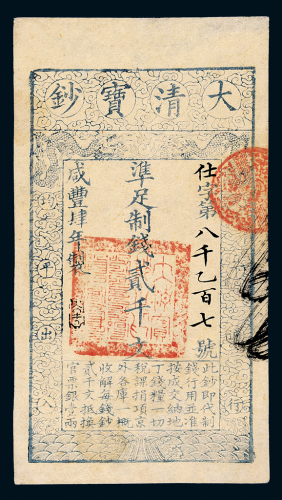 大清寶鈔
仕字第八千乙百七號
準足制錢貳千文
咸豐肆年製
行
均平出入
此鈔即代制
錢行用並准
按成交納地
丁錢糧一切
稅課捐項京
外各庫一概
收解每錢鈔
貳千文抵換
官票銀壹兩